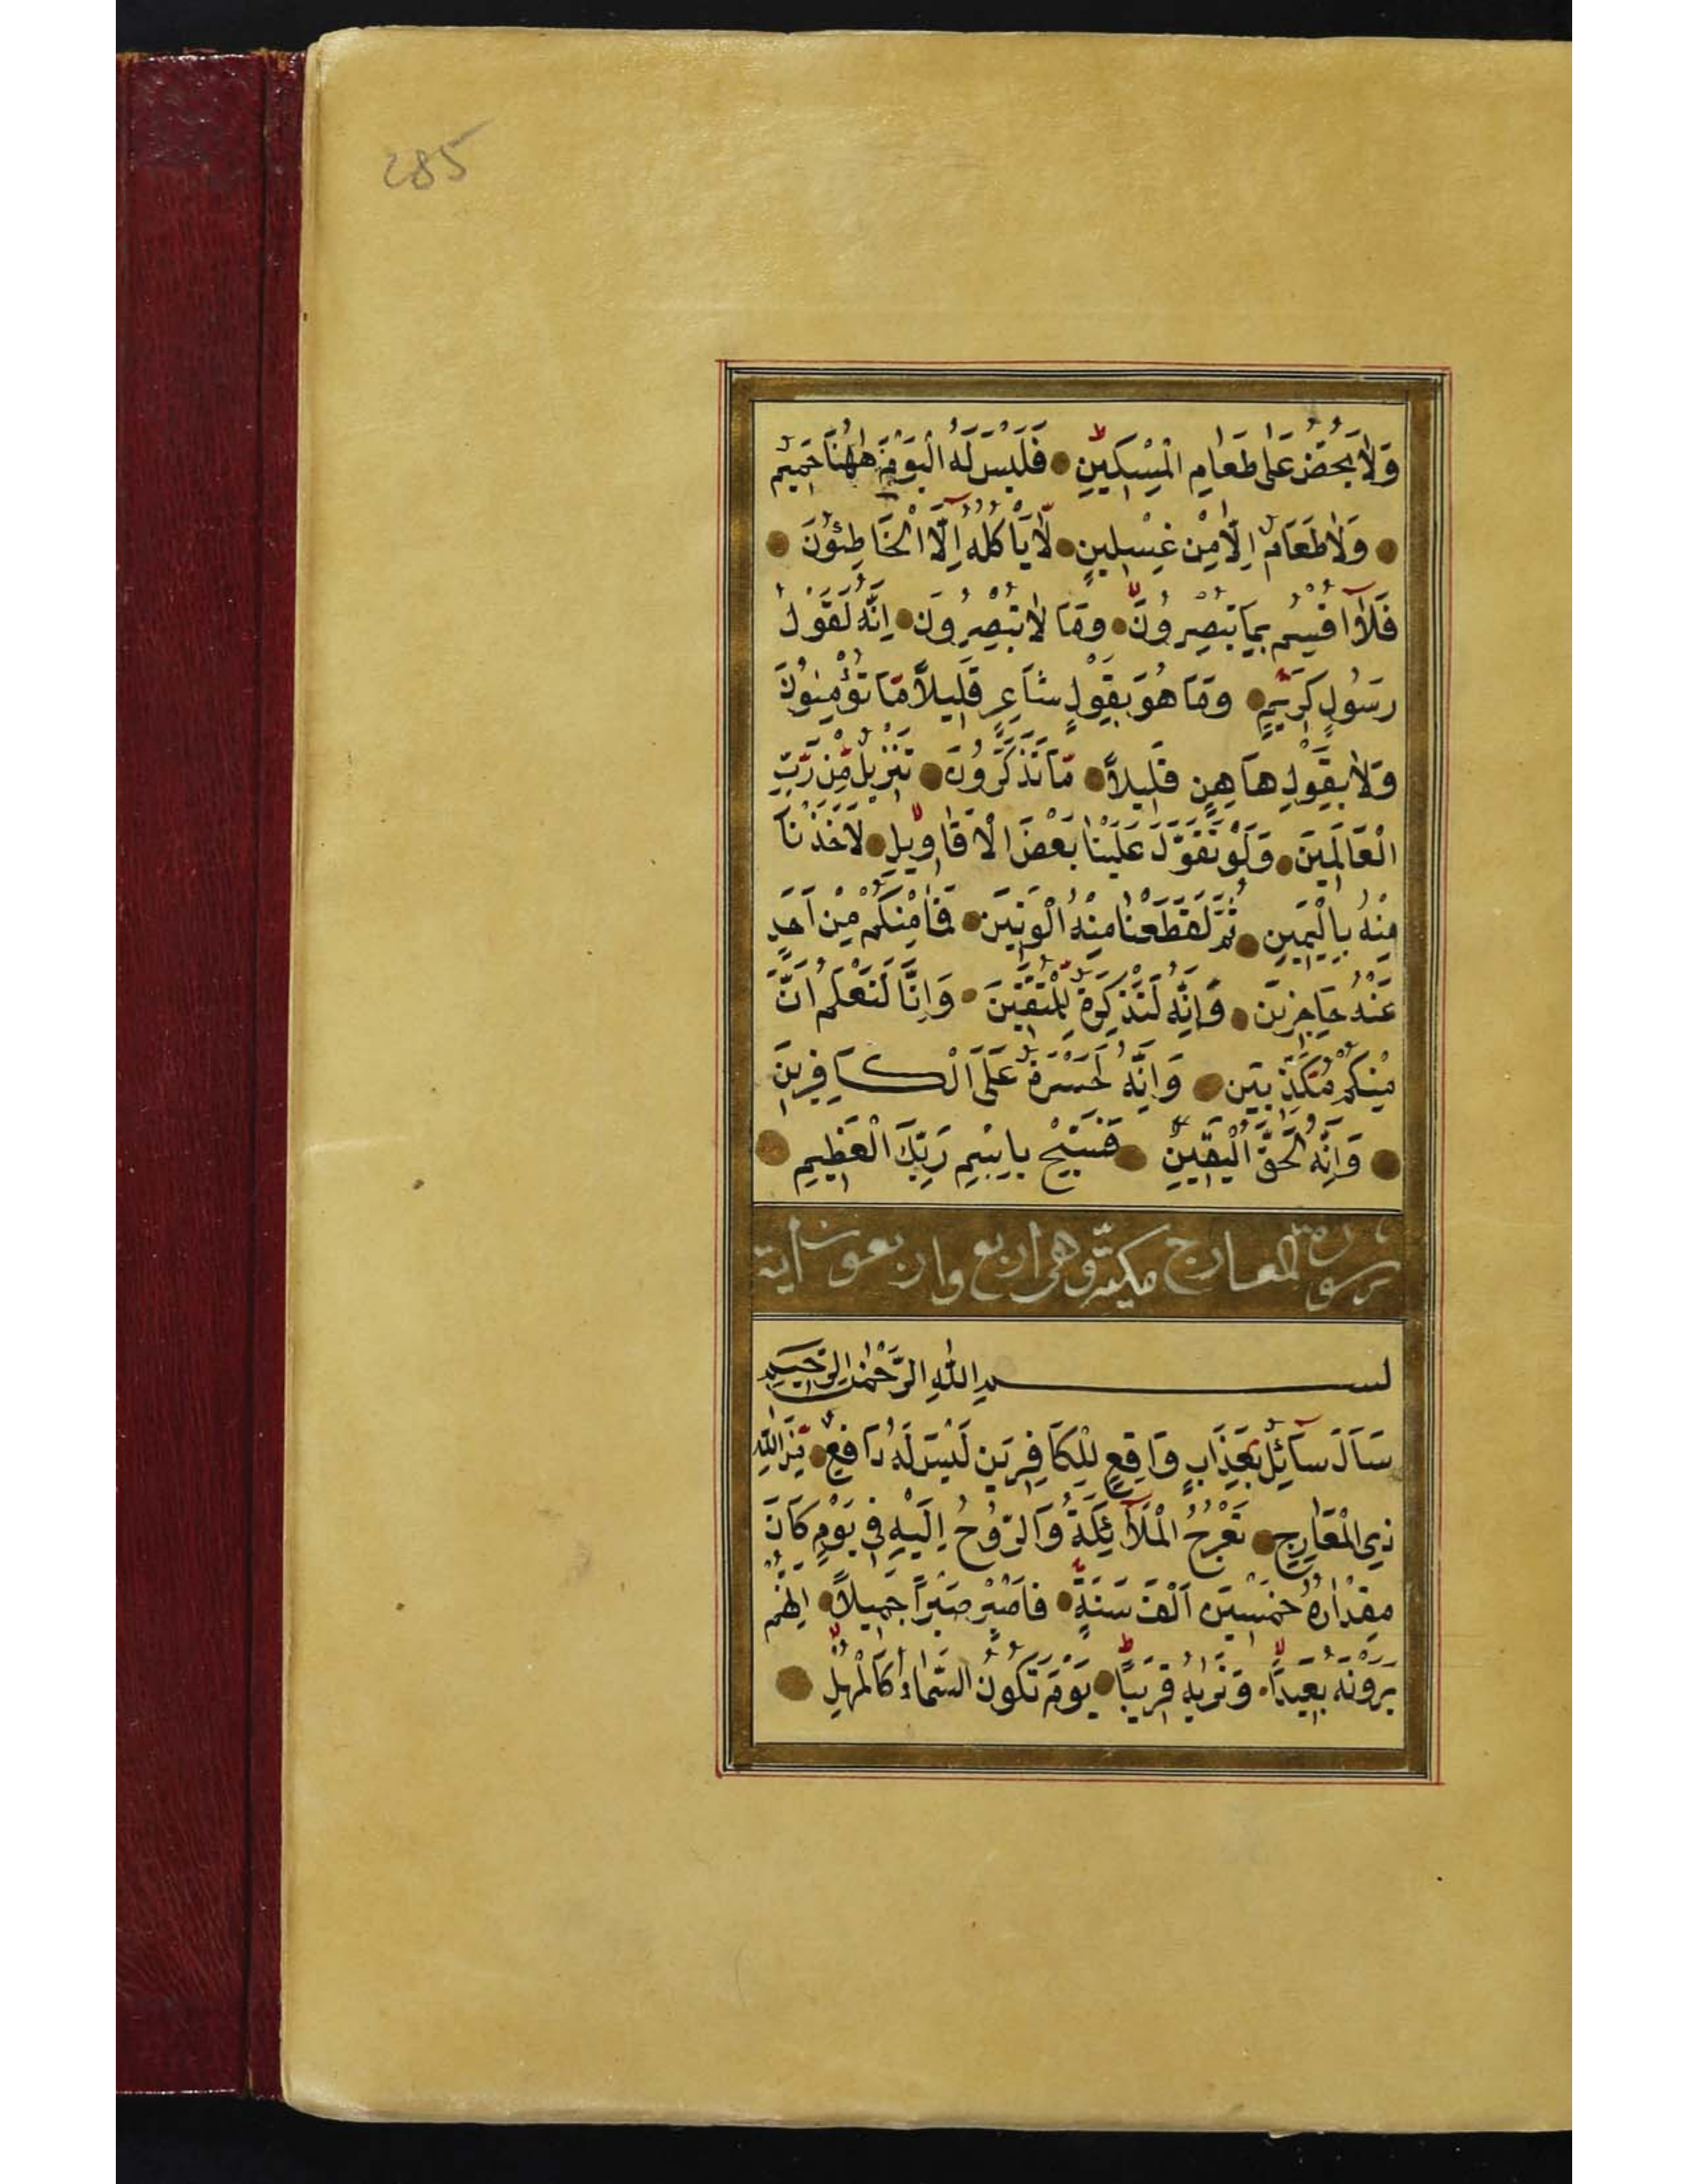 285
وَلَا يَحُضُّ عَلَى طَعَامِ الْمِسْكِينِ فَلَيْسَ لَهُ الْيَوْمَ هٰهُنَا حَمِيمٌ
وَلَا طَعَامٌ اِلَّا مِنْ غِسْلِينٍ لَّا يَاْكُلُهُ اِلَّا الْخَاطِئُونَ
فَلَآ اُقْسِمُ بِمَا تُبْصِرُونَ وَمَا لَا تُبْصِرُونَ اِنَّهُ لَقَوْلُ
رَسُولٍ كَرِيمٍ وَمَا هُوَ بِقَوْلِ شَاعِرٍ قَلِيلًا مَّا تُؤْمِنُونَ
وَلَا بِقَوْلِ هَاهِنٍ قَلِيلًا مَّا تَذَكَّرُونَ تَنْزِيلٌ مِّنْ رَّبِّ
الْعَالَمِينَ وَلَوْ تَقَوَّلَ عَلَيْنَا بَعْضَ الْاَقَاوِيلِ لَاَخَذْنَا
مِنْهُ بِالْيَمِينِ ثُمَّ لَقَطَعْنَا مِنْهُ الْوَتِينَ فَمَا مِنْكُمْ مِنْ اَحَدٍ
عَنْهُ حَاجِزِينَ وَاِنَّهُ لَتَذْكِرَةٌ لِلْمُتَّقِينَ وَاِنَّا لَنَعْلَمُ اَنَّ
مِنْكُمْ مُكَذِّبِينَ وَاِنَّهُ لَحَسْرَةٌ عَلَى الْكَافِرِينَ
وَاِنَّهُ لَحَقُّ الْيَقِينِ فَسَبِّحْ بِاسْمِ رَبِّكَ الْعَظِيمِ
سورة المعارج مكية وهى اربع واربعون اية
بسم اللّٰهِ الرَّحْمٰنِ الرَّحِيمِ
سَاَلَ سَآئِلٌ بِعَذَابٍ وَاقِعٍ لِلْكَافِرِينَ لَيْسَ لَهُ دَافِعٌ مِّنَ اللّٰهِ
ذِي الْمَعَارِجِ تَعْرُجُ الْمَلَآئِكَةُ وَالرُّوحُ اِلَيْهِ فِي يَوْمٍ كَانَ
مِقْدَارُهُ خَمْسِينَ اَلْفَ سَنَةٍ فَاصْبِرْ صَبْرًا جَمِيلًا اِنَّهُمْ
يَرَوْنَهُ بَعِيدًا وَنَرٰيهُ قَرِيبًا يَوْمَ تَكُونُ السَّمَاءُ كَالْمُهْلِ